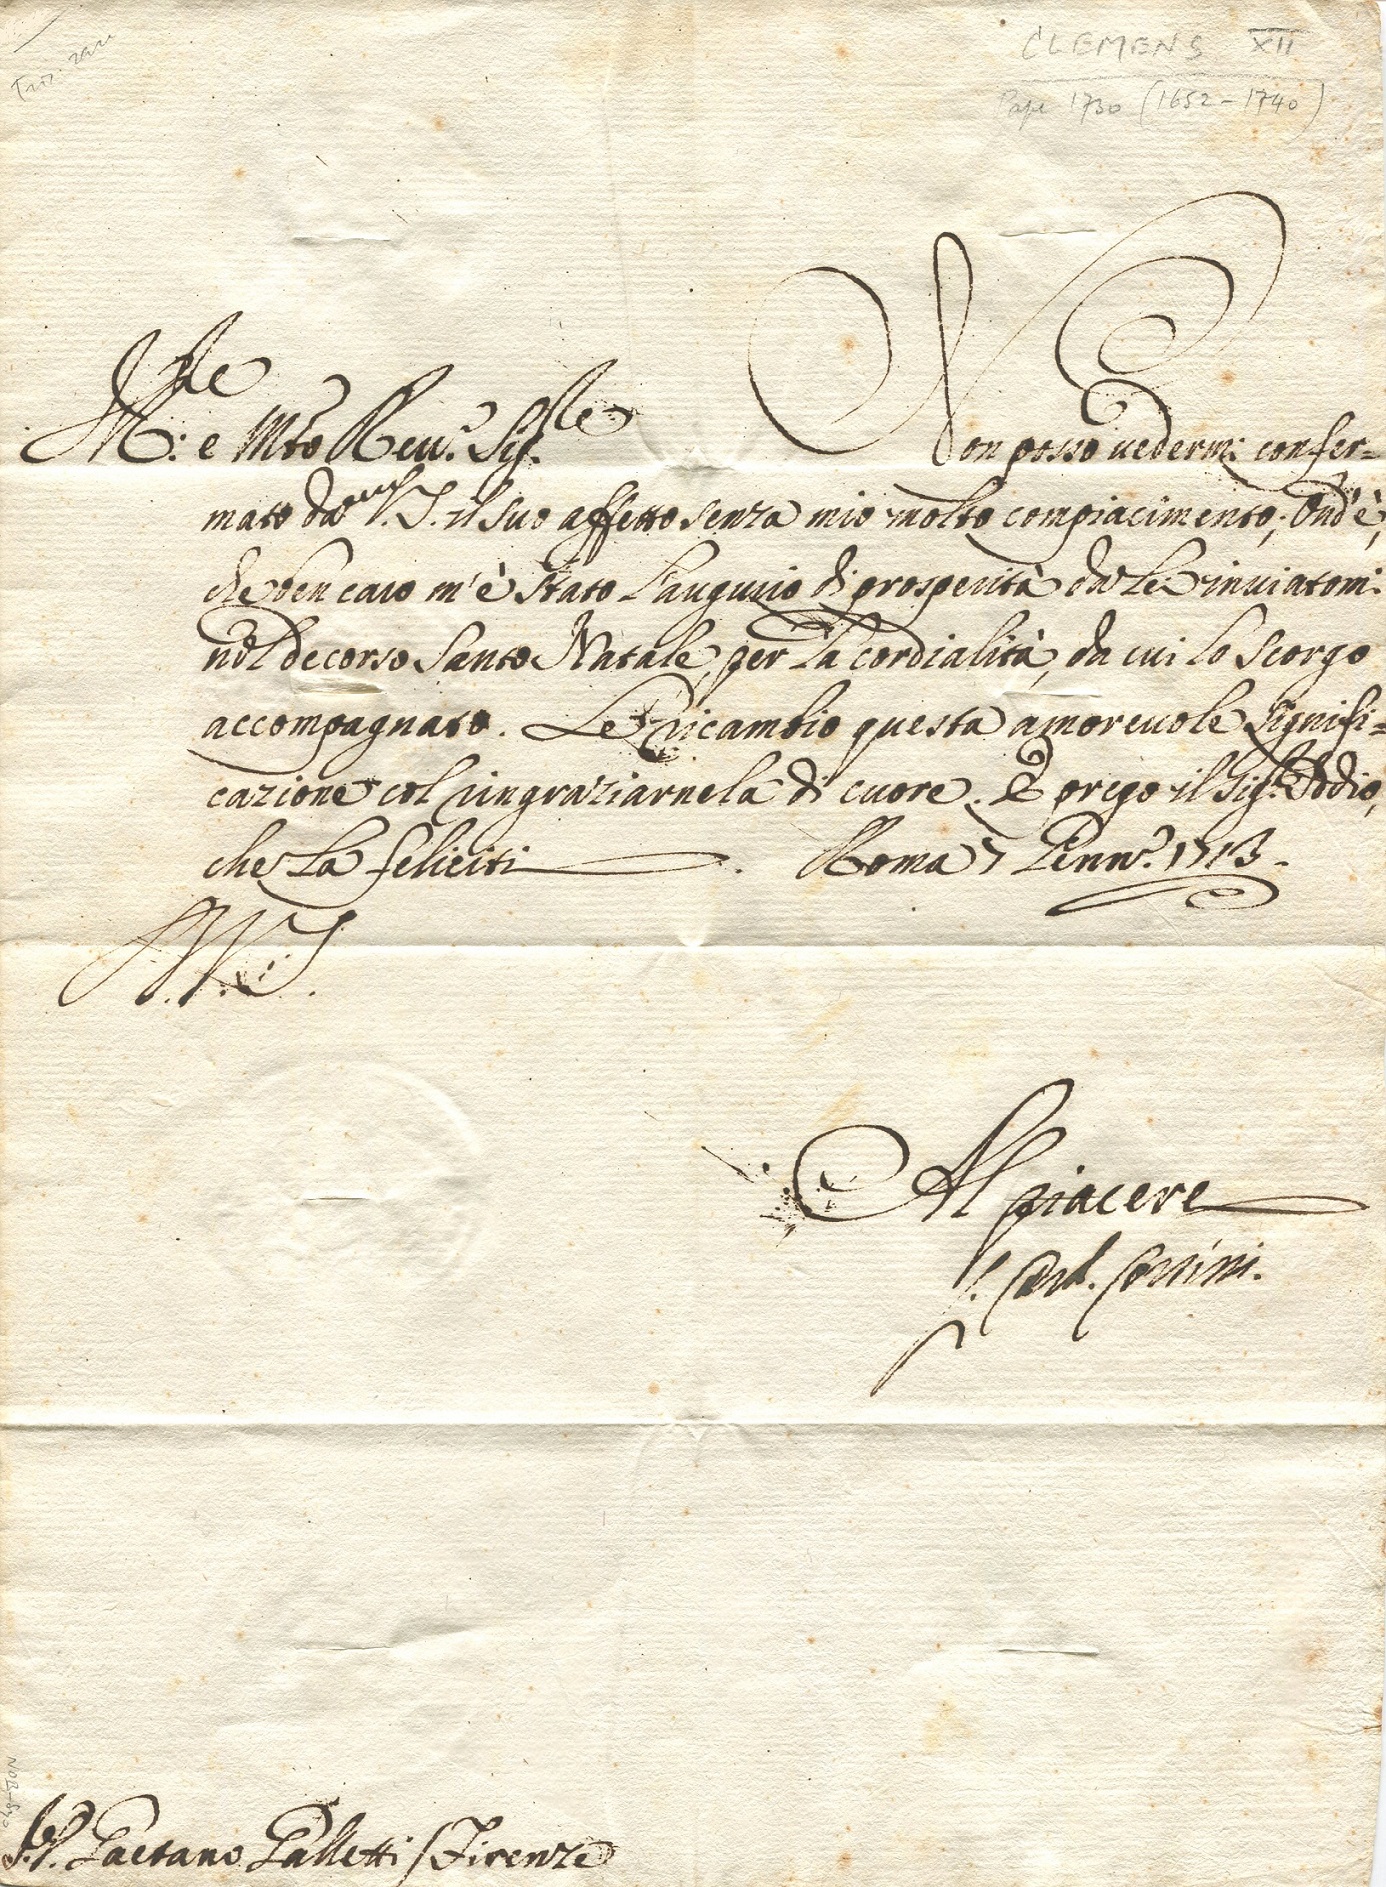 CLEMENS XII
Pape 1730 (1652-1740)
M:le e Mto Reu. Sig.le
Non posso uedermi confer=
mato da V.S. il suo affetto senza mio molto compiacimento; Ond'è,
che ben caro m'è stato l'augurio di prosperità da Lei inuiatomi
nel decorso Santo Natale, per la cordialità, da cui lo scorgo
accompagnato. Le ricambio questa amoreuole signifi=
cazione col ringraziarnela di cuore. E prego il Sig.r Iddio,
che La feliciti. Roma 7 Genn.o 1713.
V.S.
Al piacere
Card. Corsini.
Gaetano Galletti / Firenze